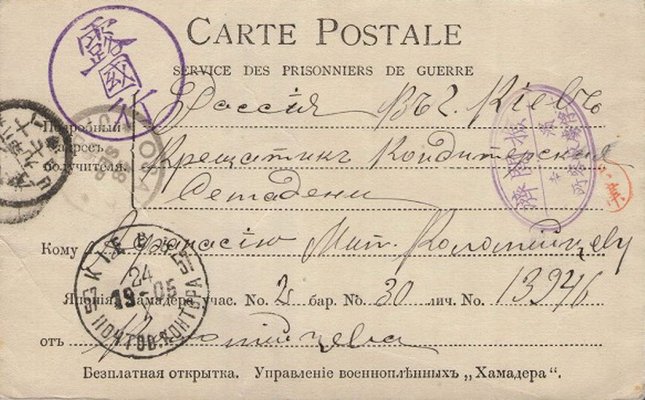 CARTE POSTALE
SERVICE DES PRISONNIERS DE GUERRE
露國行
Россія въ г. Кіевъ
Подробный адресъ получителя.
Крещатикъ Кондитерская
Кому Афанасію Мит. Коломійцеву
КІЕВЪ
24
19-05
ПОЧТОВ. КОНТОРА
Японія, Хамадера учас. No. 2 бар. No. 30 лич. No. 13946
отъ Коломійцева
Безплатная открытка. Управленіе военноплѣнныхъ „Хамадера“.